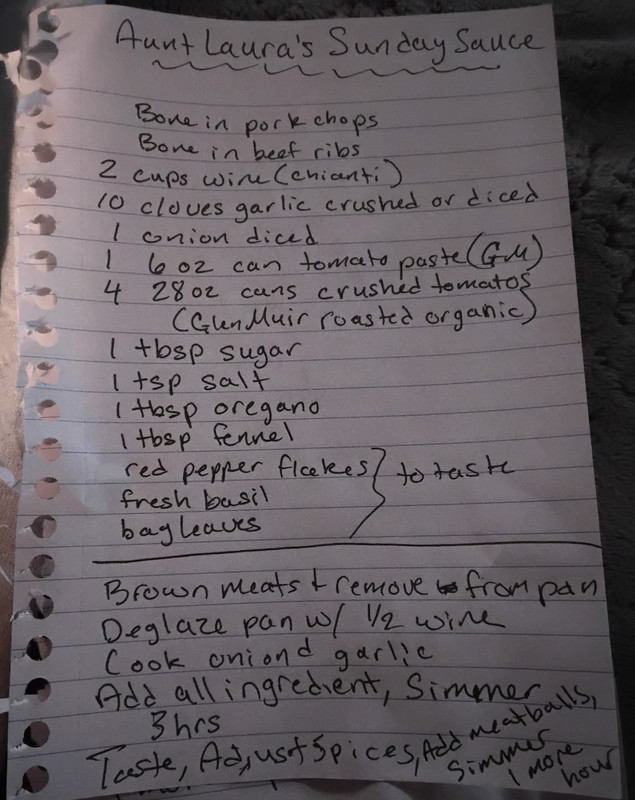 Aunt Laura's Sunday Sauce
Bone in pork chops
Bone in beef ribs
2 cups wine (chianti)
10 cloves garlic crushed or diced
1 onion diced
1 6 oz can tomato paste (GM)
4 28oz cans crushed tomatos
(Glen Muir roasted organic)
1 tbsp sugar
1 tsp salt
1 tbsp oregano
1 tbsp fennel
red pepper flakes
fresh basil } to taste
bay leaves
Brown meats + remove from pan
Deglaze pan w/ 1/2 wine
Cook onion d garlic
Add all ingredient, Simmer
3 hrs
Taste, Adjust Spices, Add meatballs,
Simmer
1 more
hour